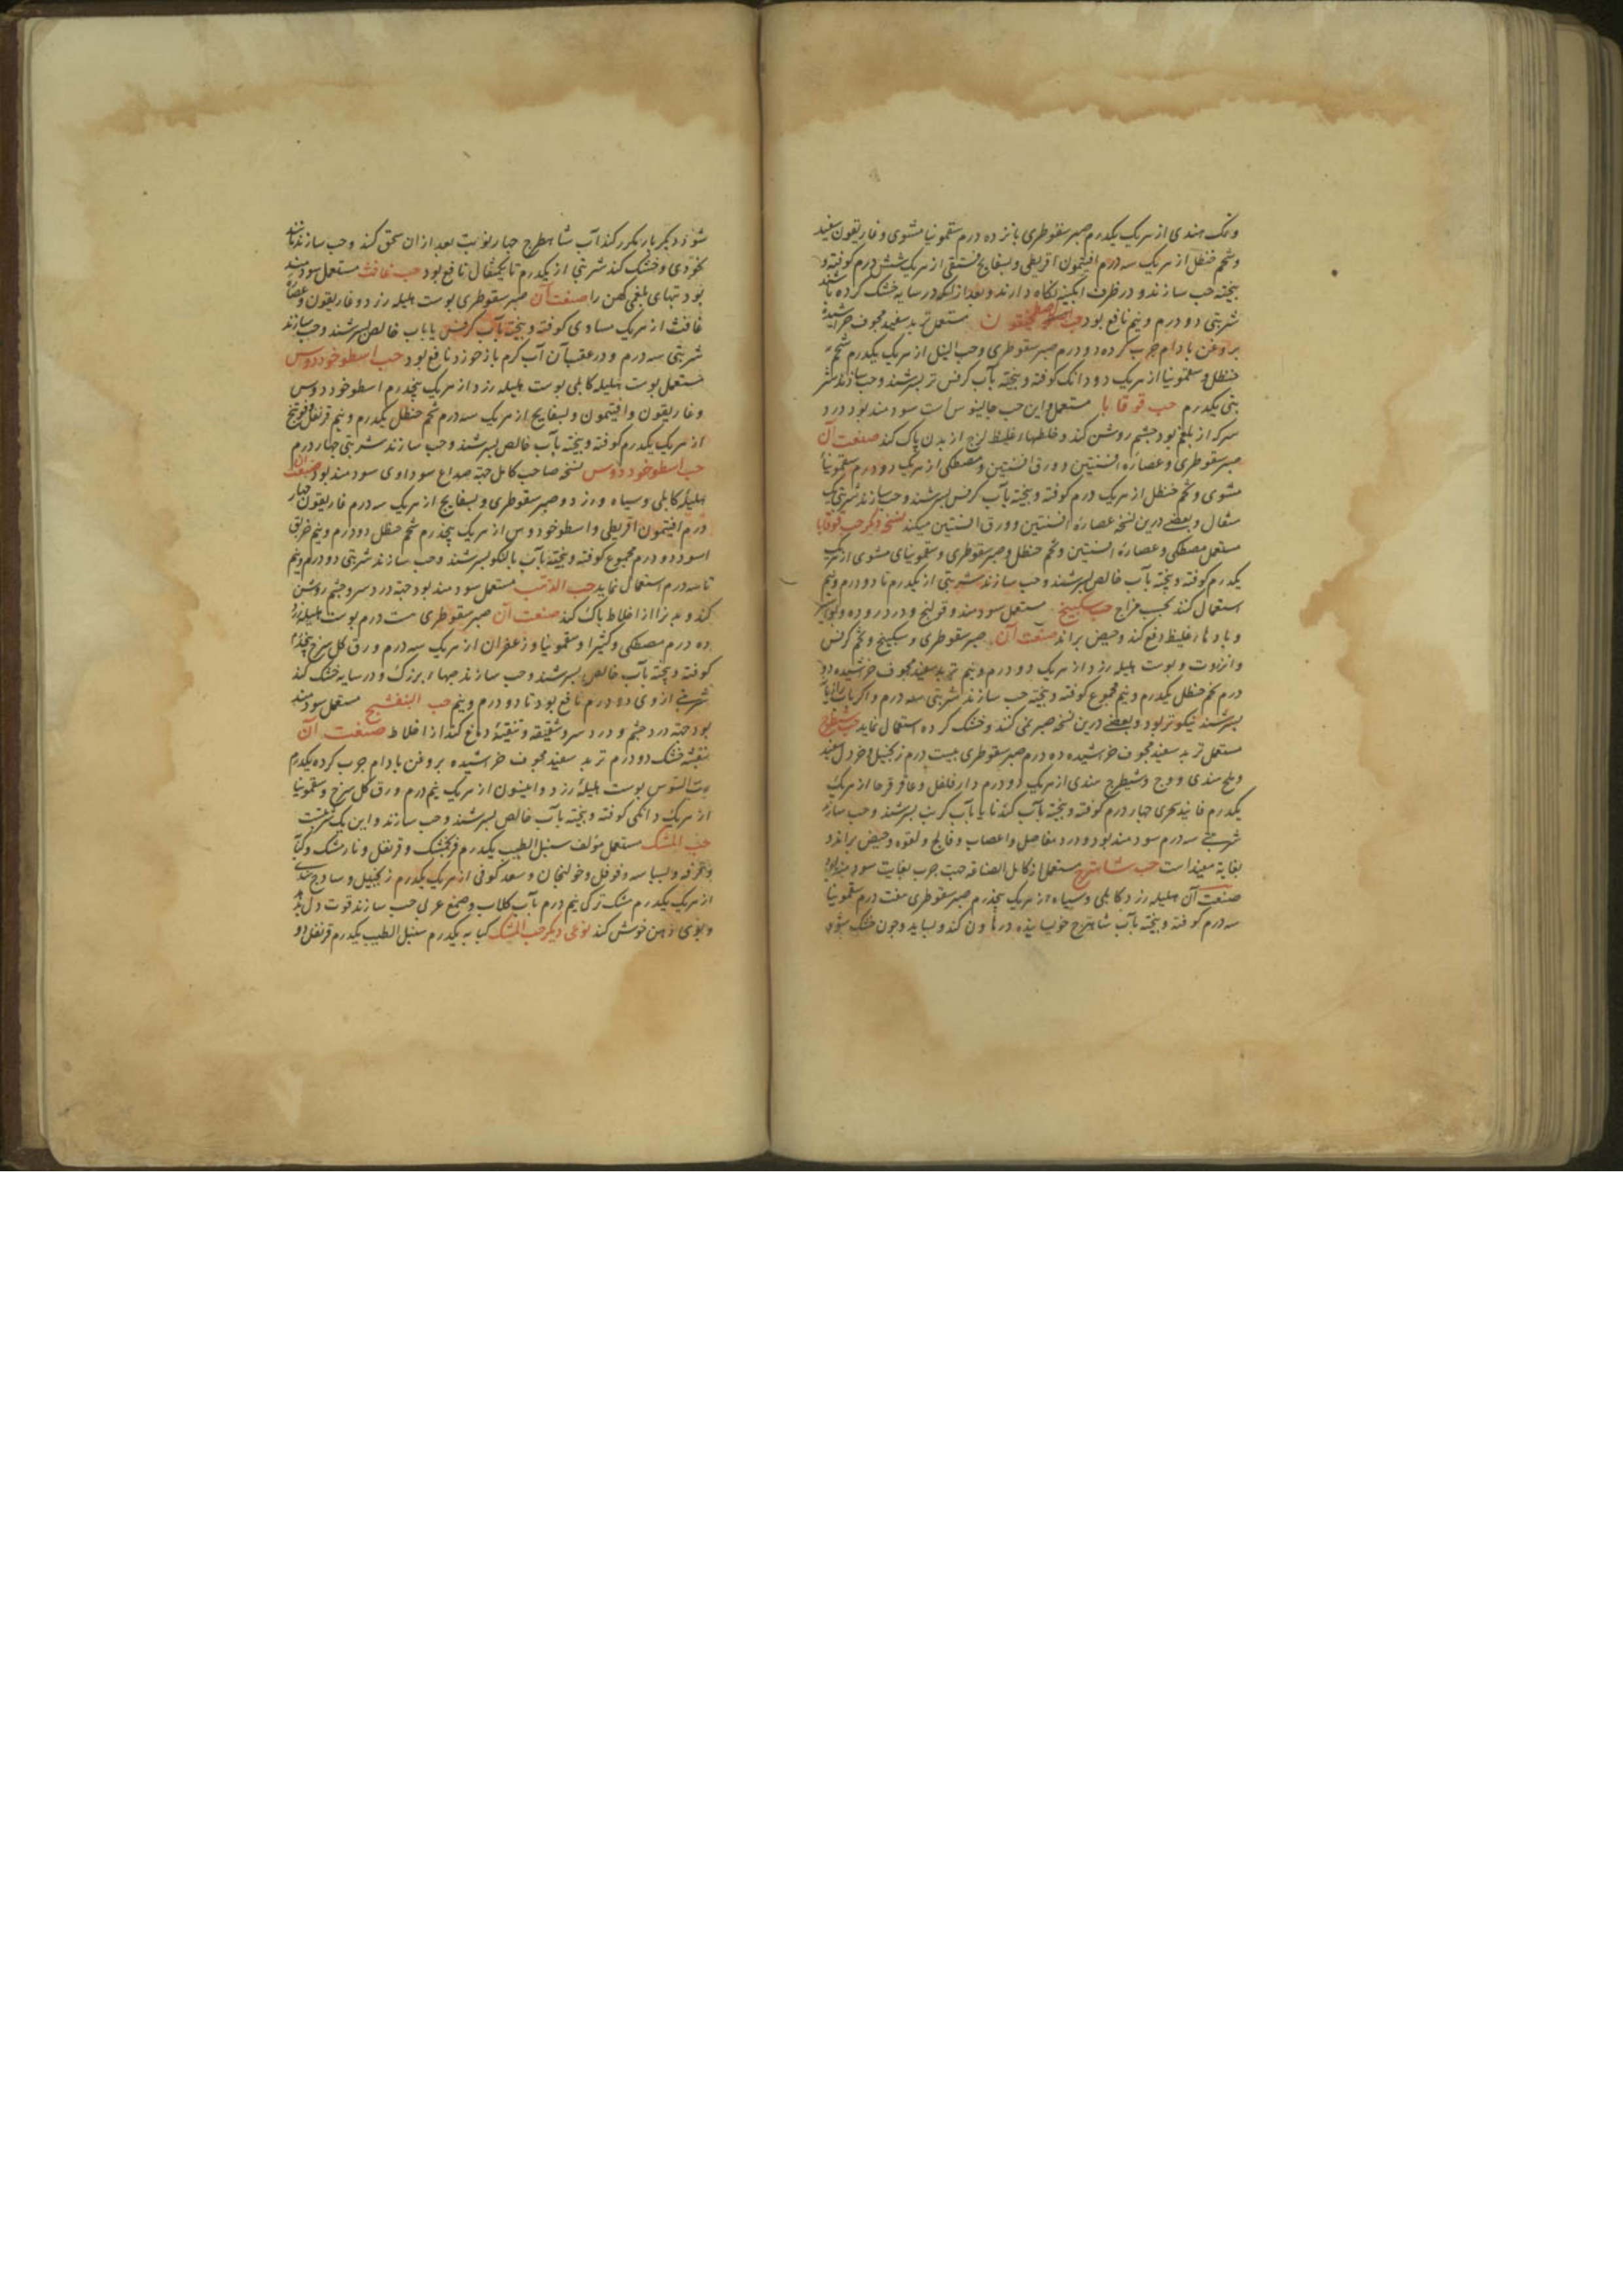 ونمک هندی از هریک یکدرم صبر سقوطری پانزده درم سقمونیا مشوی وغاریقون سفید
وشحم حنظل از هریک سه درم افیتمون اقریطی وبسفایج فستقی از هریک شش درم کوفته و
بیخته حب سازند و در ظرف آبکینه نکاه دارند وبعد از آنکه در سایه خشک کرده باشند
شربتی دو درم ونیم نافع بود حب مستعمل تربد سفید مجوف خراشیده
بروغن بادام چرب کرده دو درم صبر سقوطری وحب النیل از هریک یکدرم شحم
حنظل وسقمونیا از هریک دو دانک کوفته وبیخته بآب کرفس تر بسرشند وحب سازند شر
بتی یکدرم حب قوقایا مستعمل واین حب جالینوس است سودمند بود درد
سر که از بلغم بود چشم روشن کند وخلطهاء غلیظ لزج از بدن پاک کند صنعت آن
صبر سقوطری وعصاره افسنتین و ورق افسنتین ومصطکی از هریک دو درم سقمونیا
مشوی وشحم حنظل از هریک درم کوفته وبیخته بآب کرفس بسرشند وحب سازند شربتی یک
مثقال وبعضی درین نسخه عصارهٔ افسنتین و ورق افسنتین میکند نسخه دیکر حب قوقایا
مستعمل مصطکی وعصارهٔ افسنتین وشحم حنظل وصبر سقوطری وسقمونیای مشوی از هریک
یکدرم کوفته وبیخته بآب خالص بسرشند وحب سازند شربتی از یکدرم تا دو درم ونیم
استعمال کنند بحسب مزاج حب سکبینج مستعمل سودمند وقولنج ودرد روده وبواسیر
وبادهاء غلیظ دفع کند وحیض براند صنعت آن صبر سقوطری وسکبینج وتخم کرفس
وانزروت وپوست هلیله زرد از هریک دو درم ونیم تربد سفید مجوف خراشیده ده
درم شحم حنظل یکدرم ونیم مجموع کوفته وبیخته حب سازند شربتی سه درم واکر بآب
بسرشند نیکوتر بود وبعضی درین نسخه صبر نمی کنند وخشک کرده استعمال نماید حب شیطرج
مستعمل تربد سفید مجوف خراشیده ده درم صبر سقوطری بیست درم زنجبیل وخردل سفید
وملح هندی ووج وشیطرج هندی از هریک دو درم دارفلفل وعاقرقرحا از هریک
یکدرم فانید سجزی چهار درم کوفته وبیخته بآب کندنا یا بآب کرنب بسرشند وحب سازند
شربتی سه درم سودمند بود درد مفاصل واعصاب وفالج ولقوه وحیض براند و
بغایة مفید است حب شاهترج مستعمل از کامل الصناعه جهت جرب بغایت سودمند بود
صنعت آن هلیله زرد کابلی وسیاه از هریک پنجدرم صبر سقوطری هفت درم سقمونیا
سه درم کوفته وبیخته بآب شاهترج خوبسانیده در هاون کند وبساید وچون خشک شود
شود دیکر بار مکرر کند آب شاهطرج چهار نوبت بعد از آن سحق کند وحب سازند مانند
نخودی وخشک کند شربتی از یکدرم تا یکمثقال نافع بود حب غافث مستعمل سودمند
بود تبهای بلغمی کهن را صنعت آن صبر سقوطری پوست هلیله زرد وغاریقون وعصاره
غافث از هریک مساوی کوفته وبیخته بآب کرفس یا بآب خالص بسرشند وحب سازند
شربتی سه درم ودر عقب آن آب کرم باز خورد نافع بود حب اسطوخودوس
مستعمل پوست هلیله کابلی پوست هلیله زرد از هریک پنجدرم اسطوخودوس
وغاریقون وافیتمون وبسفایج از هریک سه درم شحم حنظل یکدرم ونیم قرنفل وفوتنج
از هریک یکدرم کوفته وبیخته بآب خالص بسرشند وحب سازند شربتی چهار درم
حب اسطوخودوس نسخه صاحب کامل جهة صداع سوداوی سودمند بود صنعت آن
هلیله کابلی وسیاه وزرد وصبر سقوطری وبسفایج از هریک سه درم غاریقون چهار
درم افیتمون اقریطی واسطوخودوس از هریک پنجدرم شحم حنظل دو درم ونیم خربق
اسود دو درم مجموع کوفته وبیخته بآب بالنکو بسرشند وحب سازند شربتی دو درم ونیم
تا سه درم استعمال نماید حب الذهب مستعمل سودمند بود جهة درد سر وچشم روشن
کند وبدن را از اخلاط پاک کند صنعت آن صبر سقوطری هشت درم پوست هلیله زرد
ده درم مصطکی وکتیرا وسقمونیا وزعفران از هریک سه درم ورق کل سرخ پنجدرم
کوفته وبیخته بآب خالص بسرشند وحب سازند حبهاء بزرک ودر سایه خشک کند
شربتی از وی دو درم نافع بود تا دو درم ونیم حب البنفشج مستعمل سودمند
بود جهة درد چشم ودرد سر وشقیقه وتنقیهٔ دماغ کند از اخلاط صنعت آن
بنفشه خشک دو درم تربد سفید مجوف خراشیده بروغن بادام چرب کرده یکدرم
رب السوس پوست هلیلهٔ زرد وانیسون از هریک نیم درم ورق کل سرخ وسقمونیا
از هریک دانکی کوفته وبیخته بآب خالص بسرشند وحب سازند واین یک شربتست
حب المشک مستعمل مؤلف سنبل الطیب یکدرم فرنجمشک وقرنفل ونارمشک وکبابه
وقرفه وبسباسه وفوفل وخولنجان وسعد کوفی از هریک یکدرم زنجبیل وساذج هندی
از هریک یکدرم مشک ترکی نیم درم بآب کلاب وصمغ عربی حب سازند قوت دل بدهد
وبوی دهن خوش کند نوعی دیکر حب المشک کبابه یکدرم سنبل الطیب یکدرم قرنفل دو